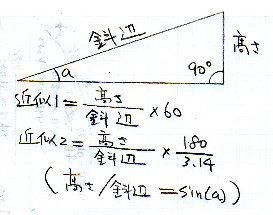 斜辺
高さ
a
90°
近似1 = 高さ/斜辺 × 60
近似2 = 高さ/斜辺 × 180/3.14
(高さ/斜辺 = sin(a))